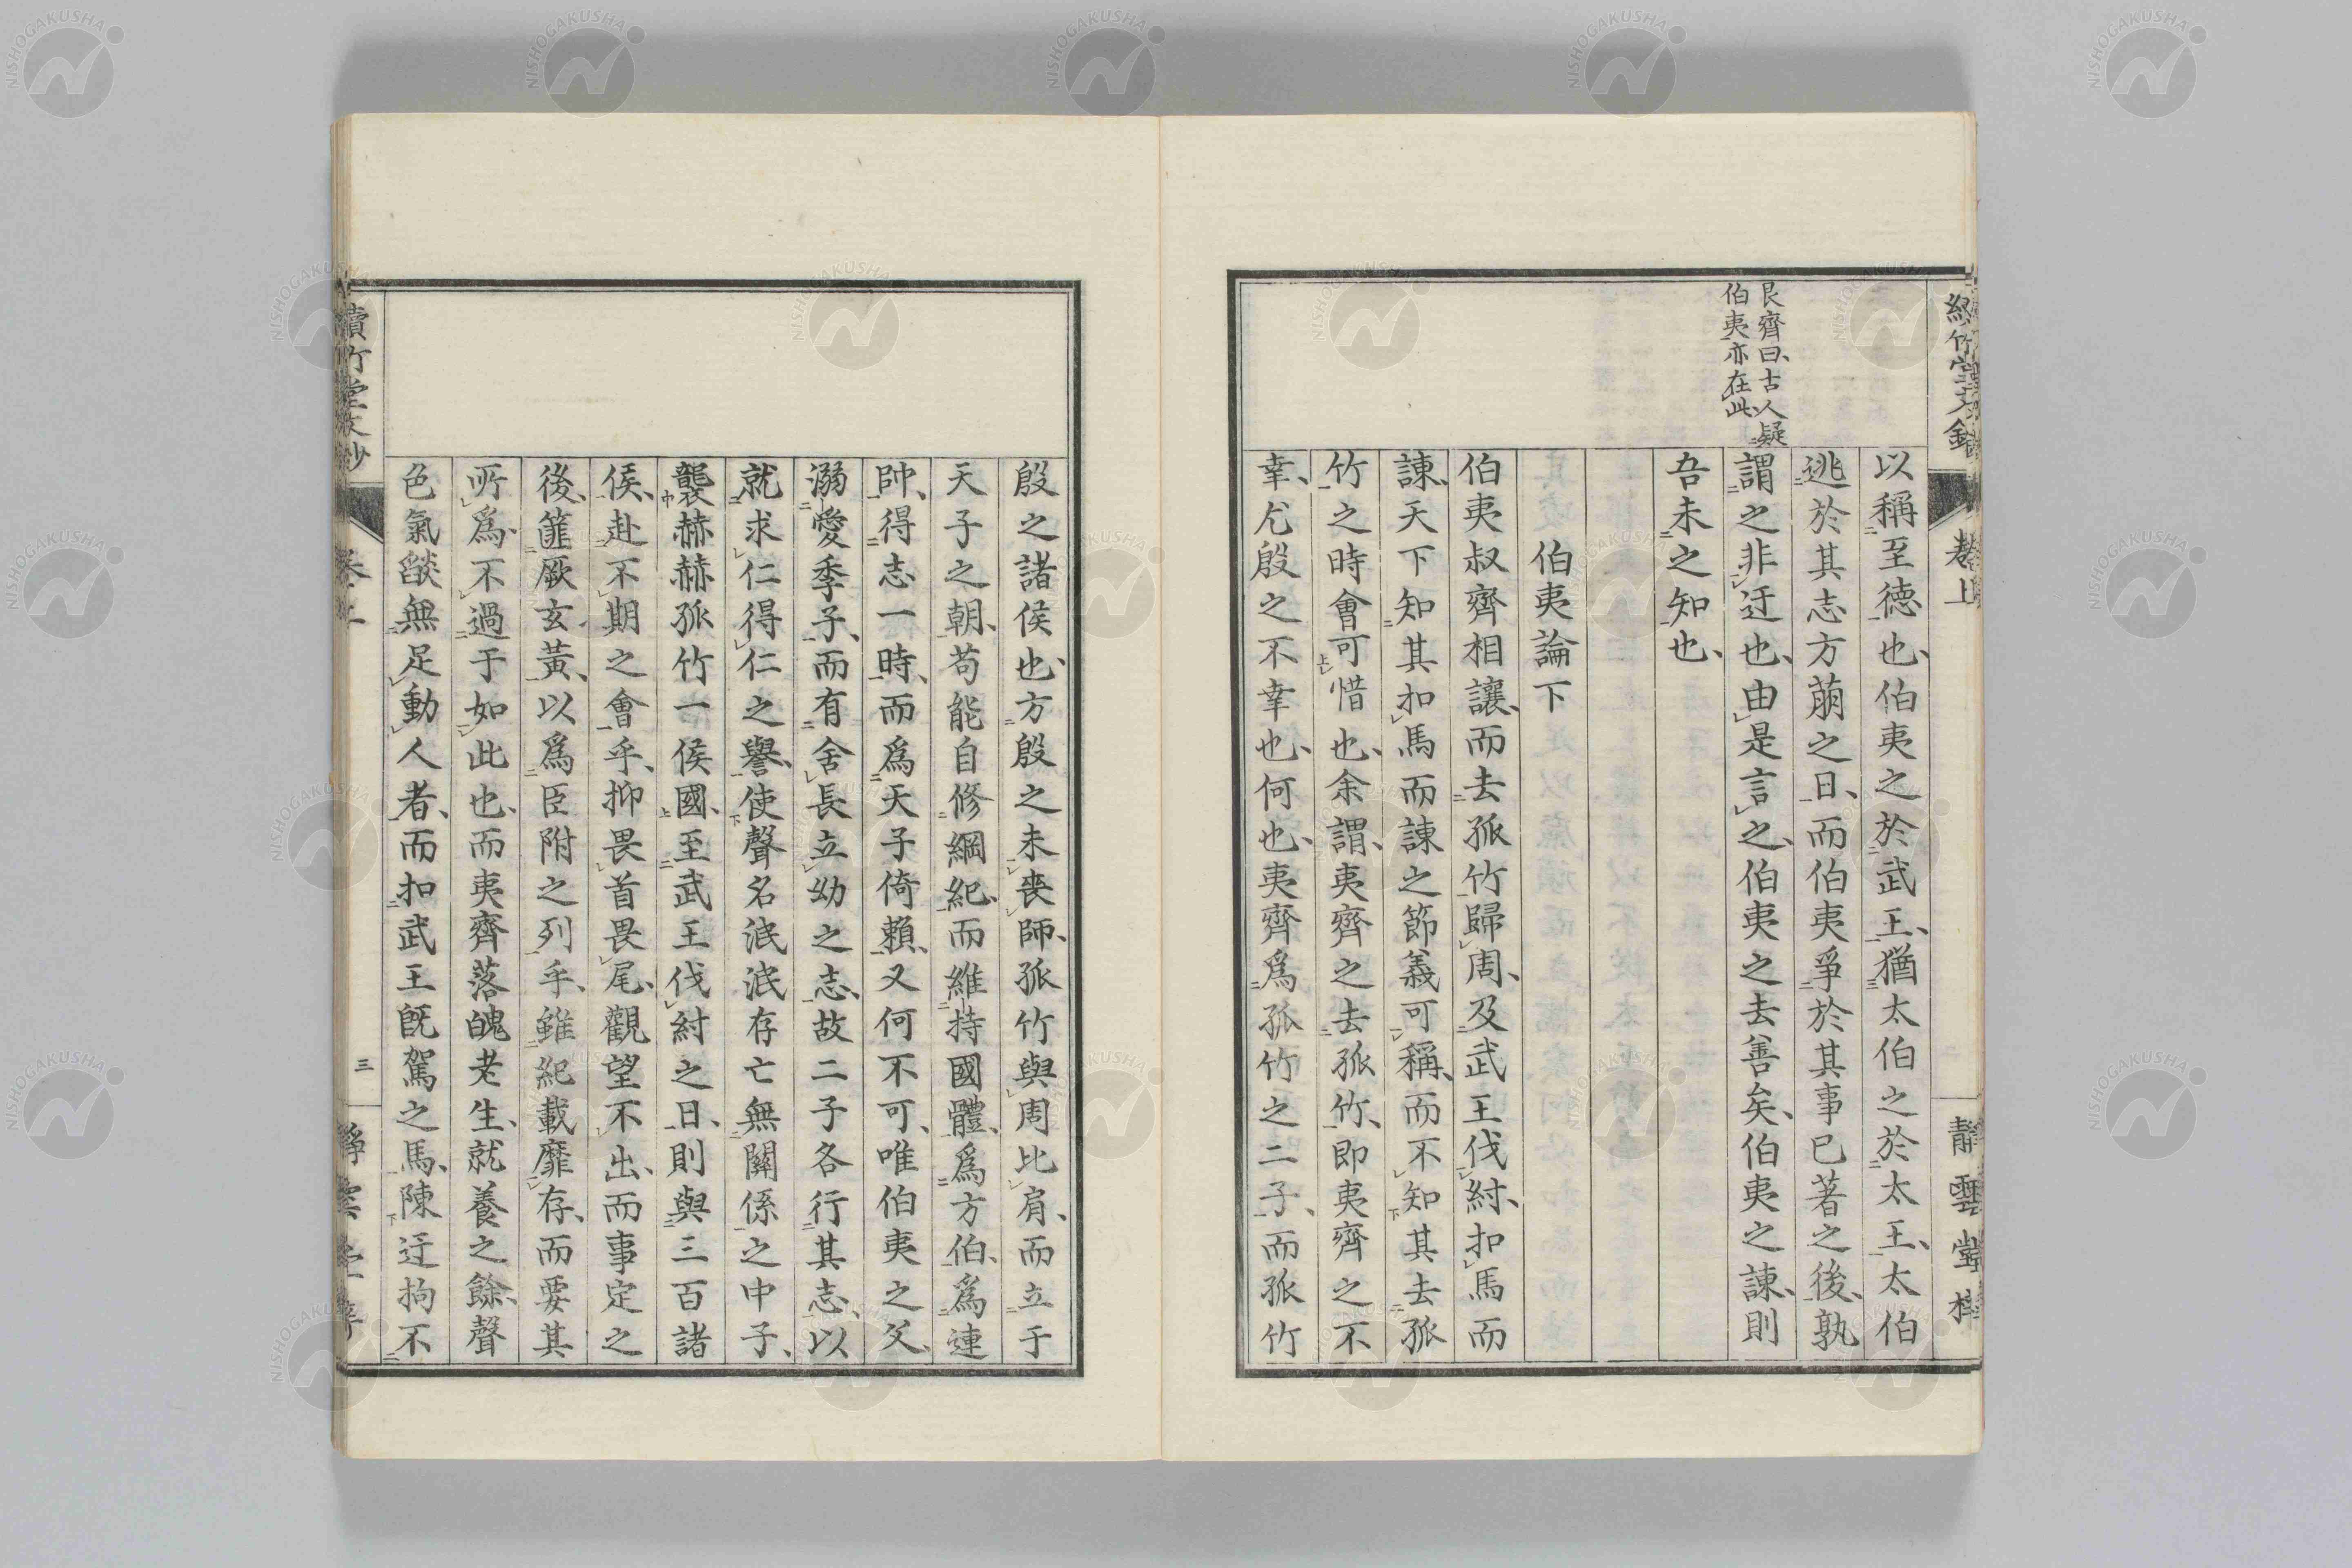 艮齊曰、古人疑
伯夷亦在此、
以稱至德也、伯夷之於武王、猶太伯之於太王、太伯
逃於其志方萠之日、而伯夷爭於其事已著之後、孰
謂之非迂也、由是言之、伯夷之去善矣、伯夷之諫、則
吾未之知也、
伯夷論下
伯夷叔齊相讓、而去孤竹歸周、及武王伐紂、扣馬而
諫、天下知其扣馬而諫之節義可稱、而不知其去孤
竹之時會可惜也、余謂、夷齊之去孤竹、即夷齊之不
幸、尤殷之不幸也、何也、夷齊爲孤竹之二子、而孤竹
殷之諸侯也、方殷之未喪師、孤竹與周比肩、而立于
天子之朝、苟能自修綱紀、而維持國體、爲方伯、爲連
帥、得志一時、而爲天子倚賴、又何不可、唯伯夷之父、
溺愛季子、而有舍長立幼之志、故二子各行其志、以
就求仁得仁之譽、使聲名泯泯存亡無關係之中子、
襲赫赫孤竹一侯國、至武王伐紂之日、則與三百諸
侯、赴不期之會乎、抑畏首畏尾、觀望不出、而事定之
後、篚厥玄黃、以爲臣附之列乎、雖紀載靡存、而要其
所爲、不過于如此也、而夷齊落魄老生、就養之餘、聲
色氣燄無足動人者、而扣武王旣駕之馬、陳迂拘不
卷上
靜雲堂梓
三
NISHOGAKUSHA